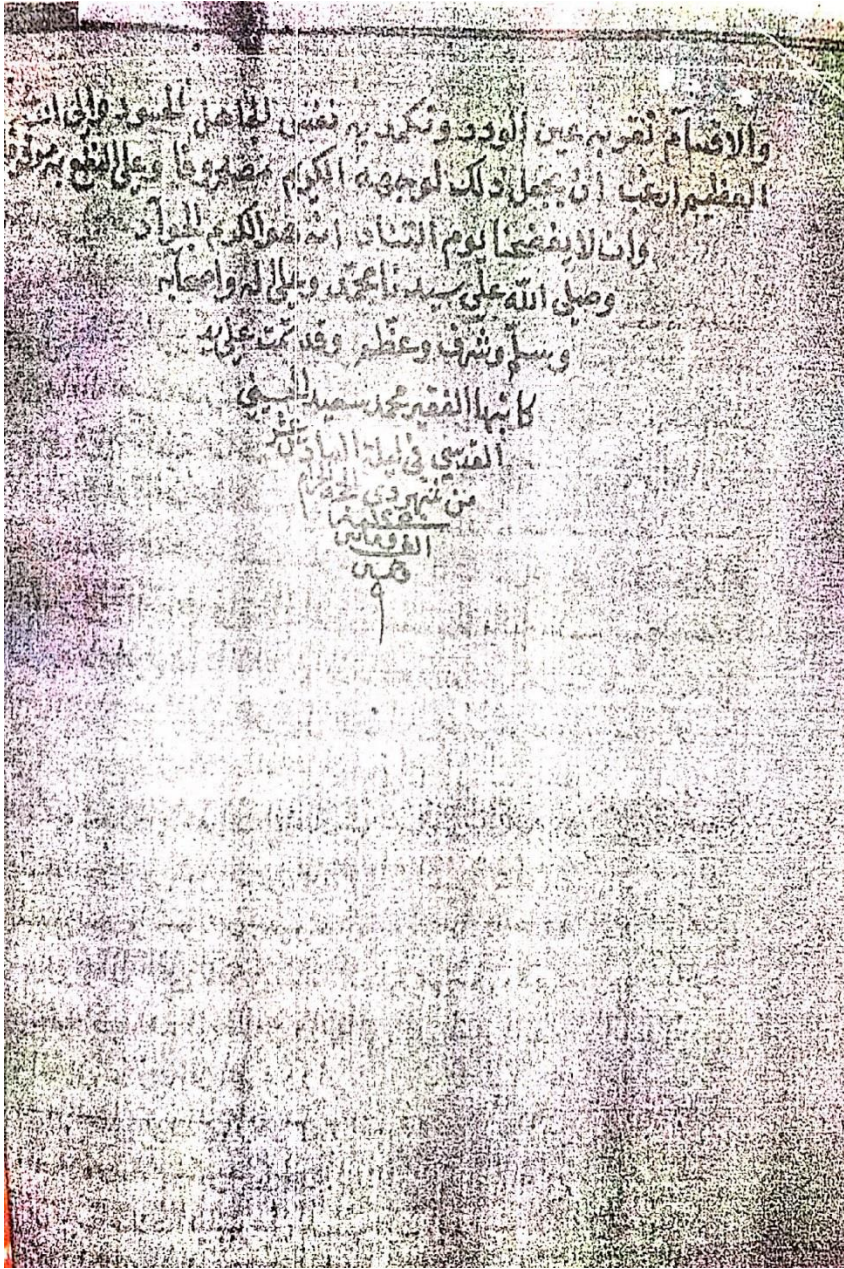 والافهام تقر به عين الودود وتكمد به نفس الجاهل الحسود والى الله
العظيم ارغب ان يجعل ذلك لوجهه الكريم مصروفا وعلى النفع به موقوفا
وان لا يفضحنا يوم التناد انه هو الكريم الجواد
وصلى الله على سيدنا محمد وعلى اله واصحابه
وسلم وشرف وعظم وقد تمت على يد
كاتبها الفقير محمد سعيد الحسيني
القدسي في ليلة
من شهر ذي